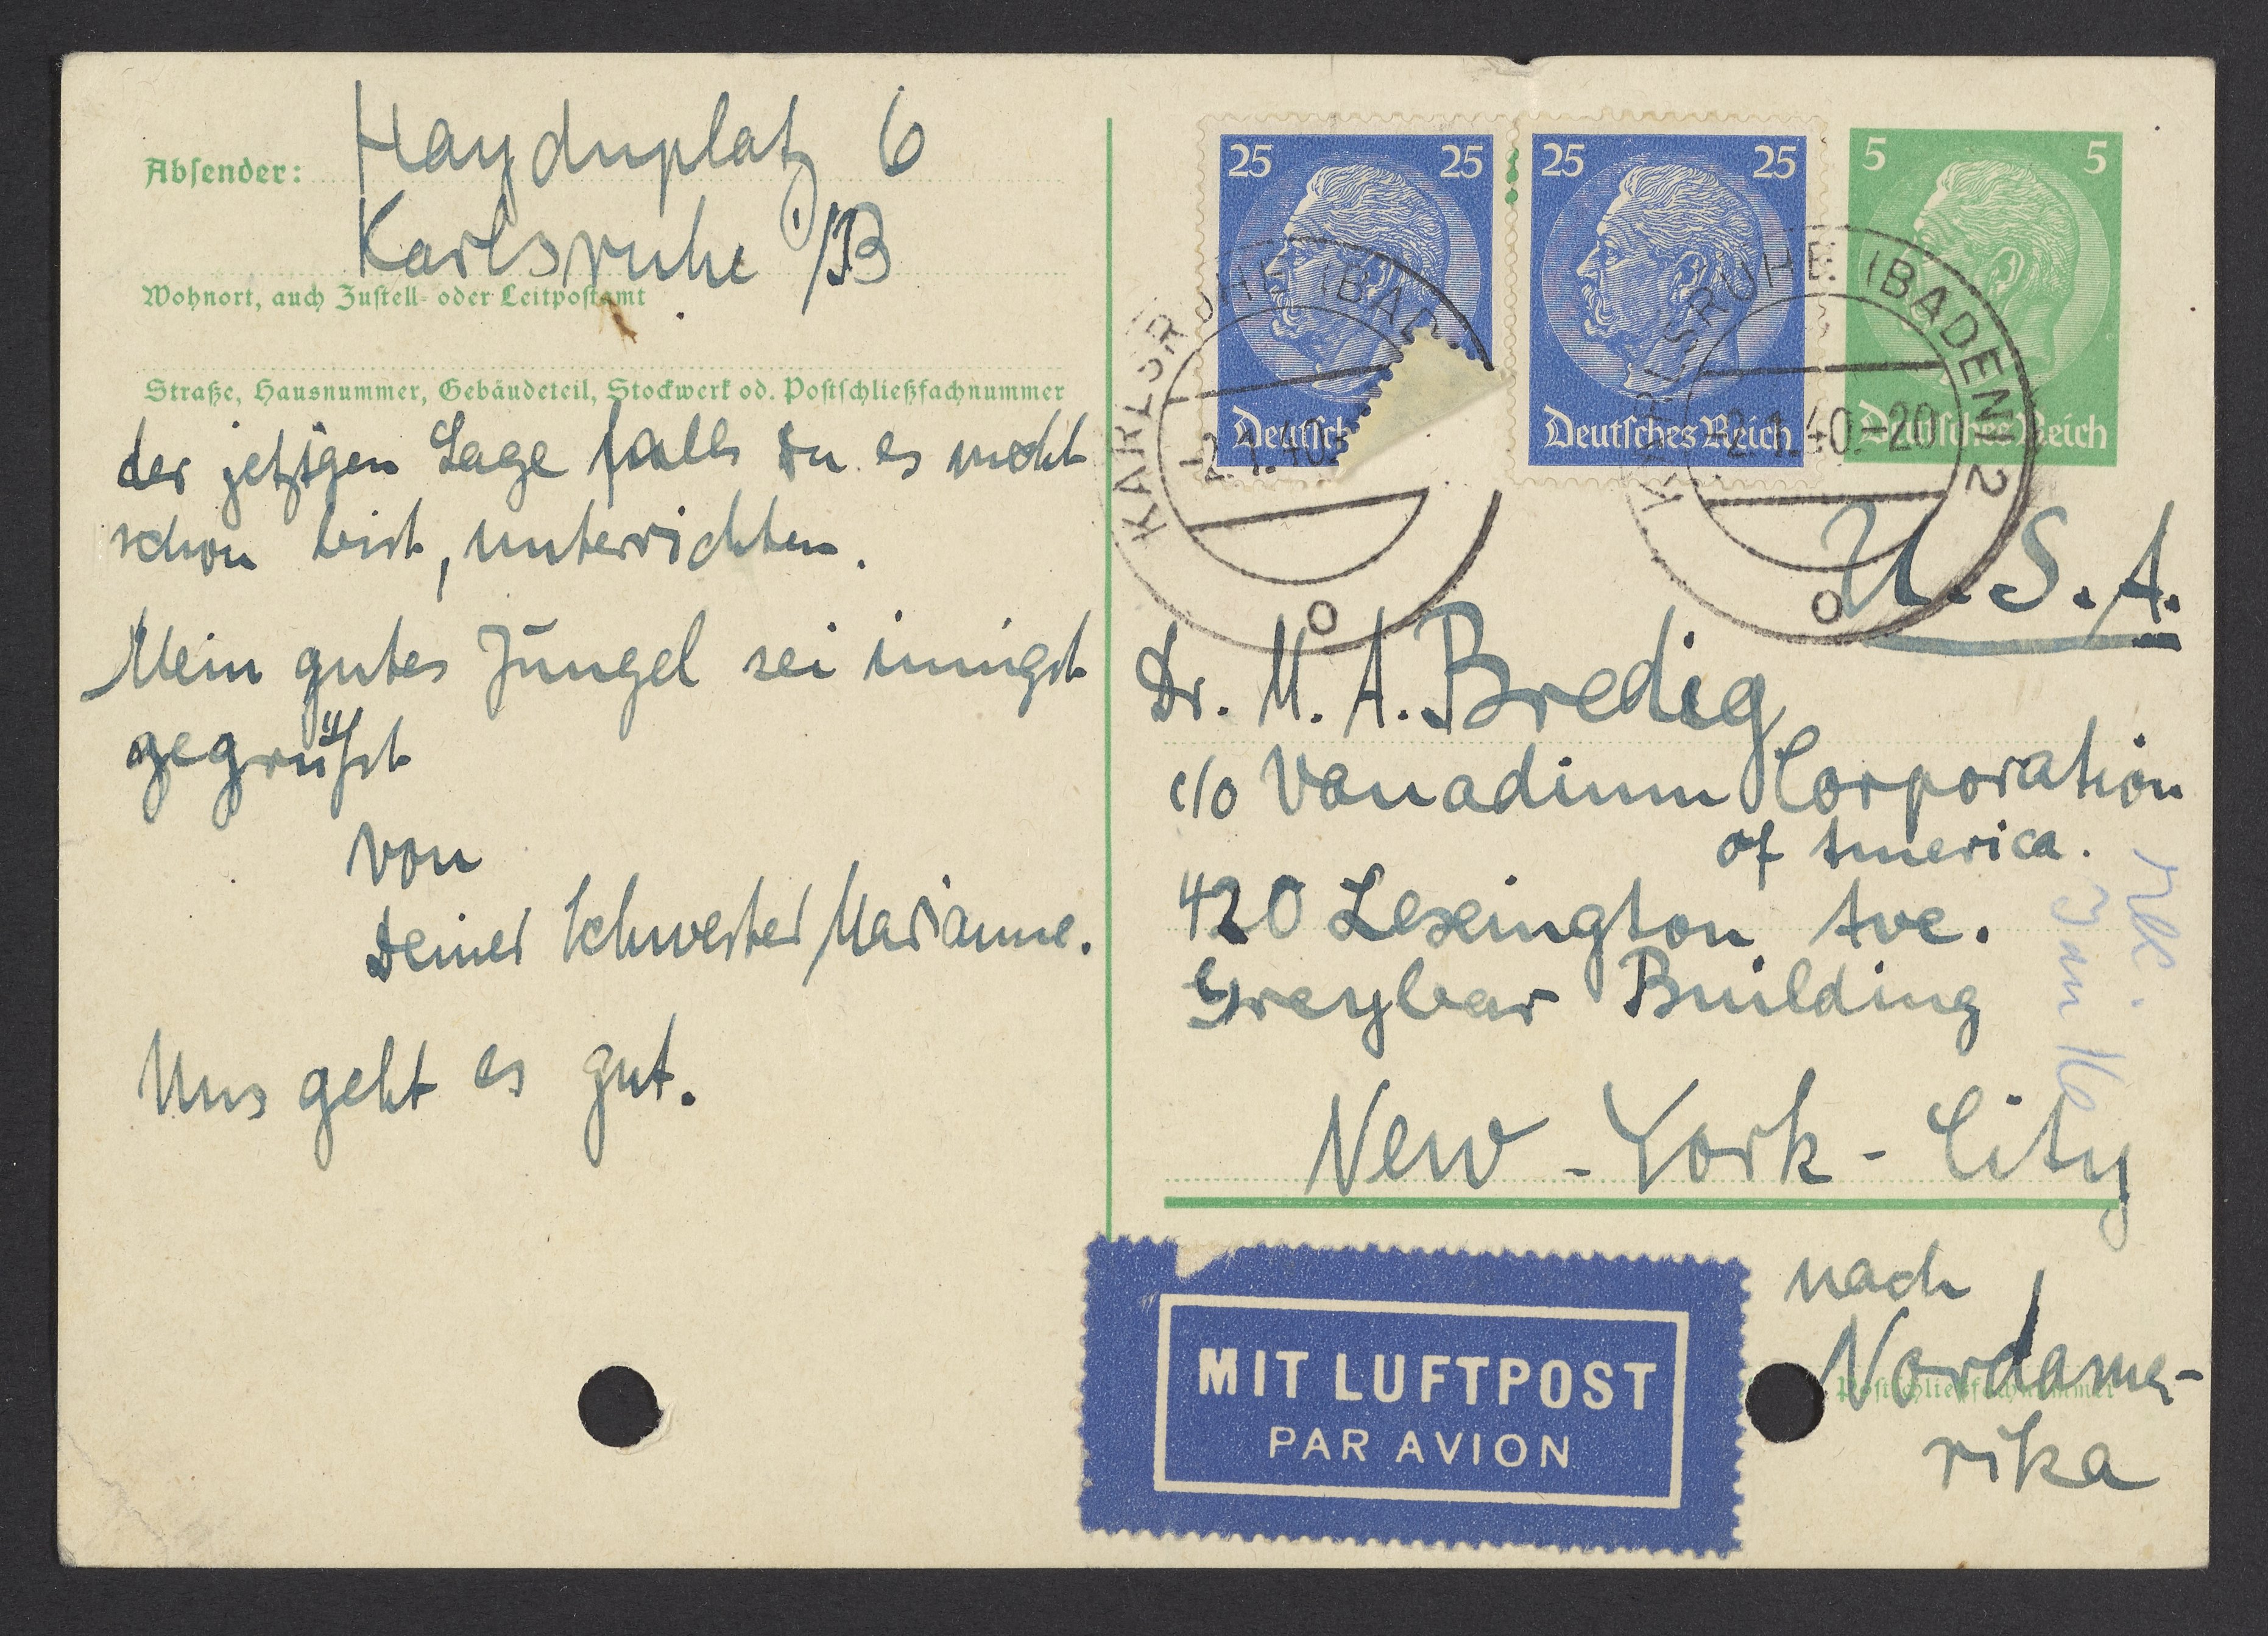 Absender: Haydnplatz 6
Karlsruhe i/B
Wohnort, auch Zustell- oder Leitpostamt
Straße, Hausnummer, Gebäudeteil, Stockwerk od. Postschließfachnummer
der jetzigen Lage falls Du es nicht
schon bist, unterrichten.
Mein gutes Jüngel sei innigst
gegrüßt
von
Deiner Schwester Marianne.
Uns geht es gut.
25 25
Deutsch
25 25
Deutsches Reich
5 5
Deutsches Reich
KARLSRUHE (BAD
2.1.40
KARLSRUHE (BADEN) 2
-2.1.40.-20
U.S.A.
Dr. M. A. Bredig
c/o Vanadium Corporation
of America.
420 Lexington Ave.
Greybar Building
New-York-City
nach
Nordame-
rika
Postschließfachnummer
MIT LUFTPOST
PAR AVION